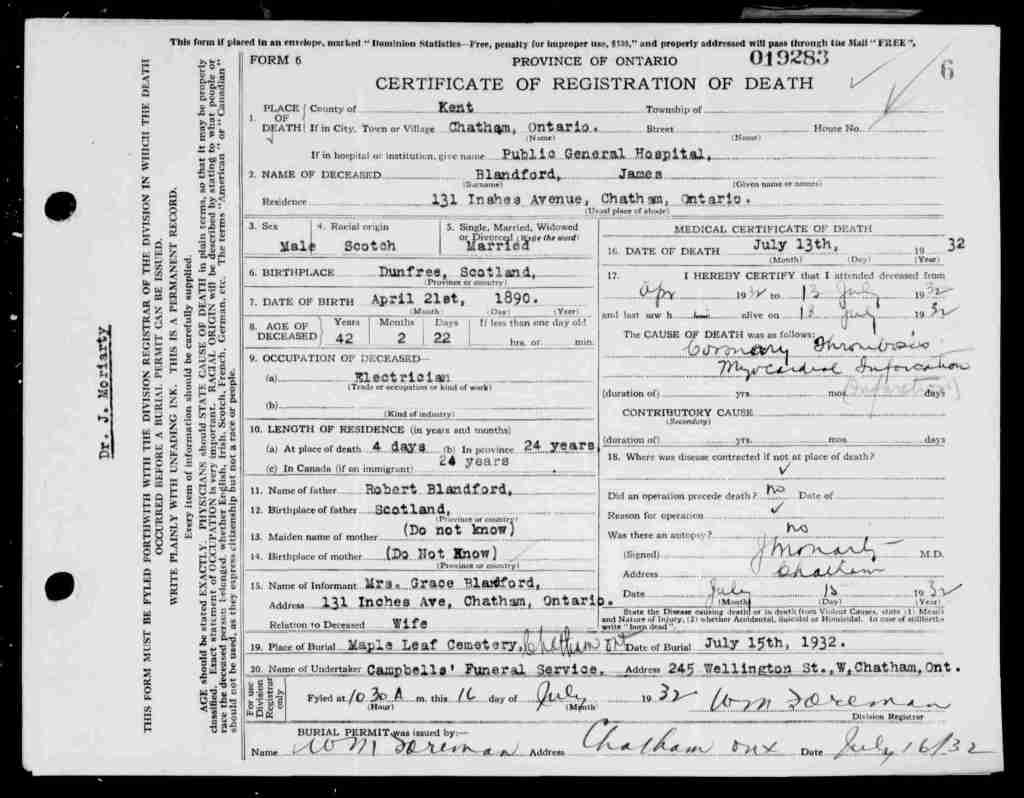 This form if placed in an envelope, marked "Dominion Statistics—Free, penalty for improper use, $300," and properly addressed will pass through the Mail "FREE",
FORM 6 PROVINCE OF ONTARIO 019283
6
CERTIFICATE OF REGISTRATION OF DEATH
1. PLACE OF DEATH County of Kent Township of
If in City, Town or Village Chatham, Ontario. Street House No.
(Name) (Name)
If in hospital or institution, give name Public General Hospital,
2. NAME OF DECEASED Blandford, James
(Surname) (Given name or names)
Residence 131 Inshes Avenue, Chatham, Ontario.
(Usual place of abode)
3. Sex Male
4. Racial origin Scotch
5. Single, Married, Widowed or Divorced (Write the word) Married
6. BIRTHPLACE Dunfree, Scotland,
(Province or country)
7. DATE OF BIRTH April 21st, 1890.
(Month) (Day) (Year)
8. AGE OF DECEASED Years Months Days If less than one day old
42 2 22 hrs. or min.
9. OCCUPATION OF DECEASED—
(a) Electrician
(Trade or occupation or kind of work)
(b)
(Kind of industry)
10. LENGTH OF RESIDENCE (in years and months)
(a) At place of death 4 days (b) In province 24 years,
(c) In Canada (if an immigrant) 24 years
11. Name of father Robert Blandford,
12. Birthplace of father Scotland,
(Province or country)
13. Maiden name of mother (Do not know)
14. Birthplace of mother (Do Not Know)
(Province or country)
15. Name of Informant Mrs. Grace Blandford,
Address 131 Inches Ave, Chatham, Ontario.
Relation to Deceased Wife
MEDICAL CERTIFICATE OF DEATH
16. DATE OF DEATH July 13th, 1932
(Month) (Day) (Year)
17. I HEREBY CERTIFY that I attended deceased from
Apr 1932 to 13 July 1932
and last saw h alive on 13 July 1932
The CAUSE OF DEATH was as follows:
Coronary Thrombosis
Myocardial Inforcation
(Infarction)
(duration of) yrs. mos. days
CONTRIBUTORY CAUSE
(Secondary)
(duration of) yrs. mos. days
18. Where was disease contracted if not at place of death?
Did an operation precede death? No Date of
Reason for operation
Was there an autopsy? no
(Signed) J Moriarty M.D.
Address Chatham
Date July 13 1932
(Month) (Day) (Year)
State the Disease causing death or in death from Violent Causes, state (1) Means
and Nature of Injury, (2) whether Accidental, Suicidal or Homicidal. In case of stillbirths
write "born dead"
19. Place of Burial Maple Leaf Cemetery, Chatham Ont Date of Burial July 15th, 1932.
20. Name of Undertaker Campbells' Funeral Service, Address 245 Wellington St.,W,Chatham,Ont.
For use Division Registrar only
Fyled at 10 30 A m. this 16 day of July 1932 WM Foreman
(Hour) (Month) Division Registrar
BURIAL PERMIT was issued by:—
Name WM Foreman Address Chatham Ont Date July 16/32
Dr. J. Moriarty
THIS FORM MUST BE FYLED FORTHWITH WITH THE DIVISION REGISTRAR OF THE DIVISION IN WHICH THE DEATH
OCCURRED BEFORE A BURIAL PERMIT CAN BE ISSUED.
WRITE PLAINLY WITH UNFADING INK. THIS IS A PERMANENT RECORD.
Every item of information should be carefully supplied.
AGE should be stated EXACTLY. PHYSICIANS should STATE CAUSE OF DEATH in plain terms, so that it may be properly
classified. Exact statement of OCCUPATION is very important. RACIAL ORIGIN will be described by stating to what people or
race the deceased person belonged, whether English, Irish, Scotch, French, German, etc. The terms "American" or "Canadian"
should not be used, as they express citizenship but not a race or people.